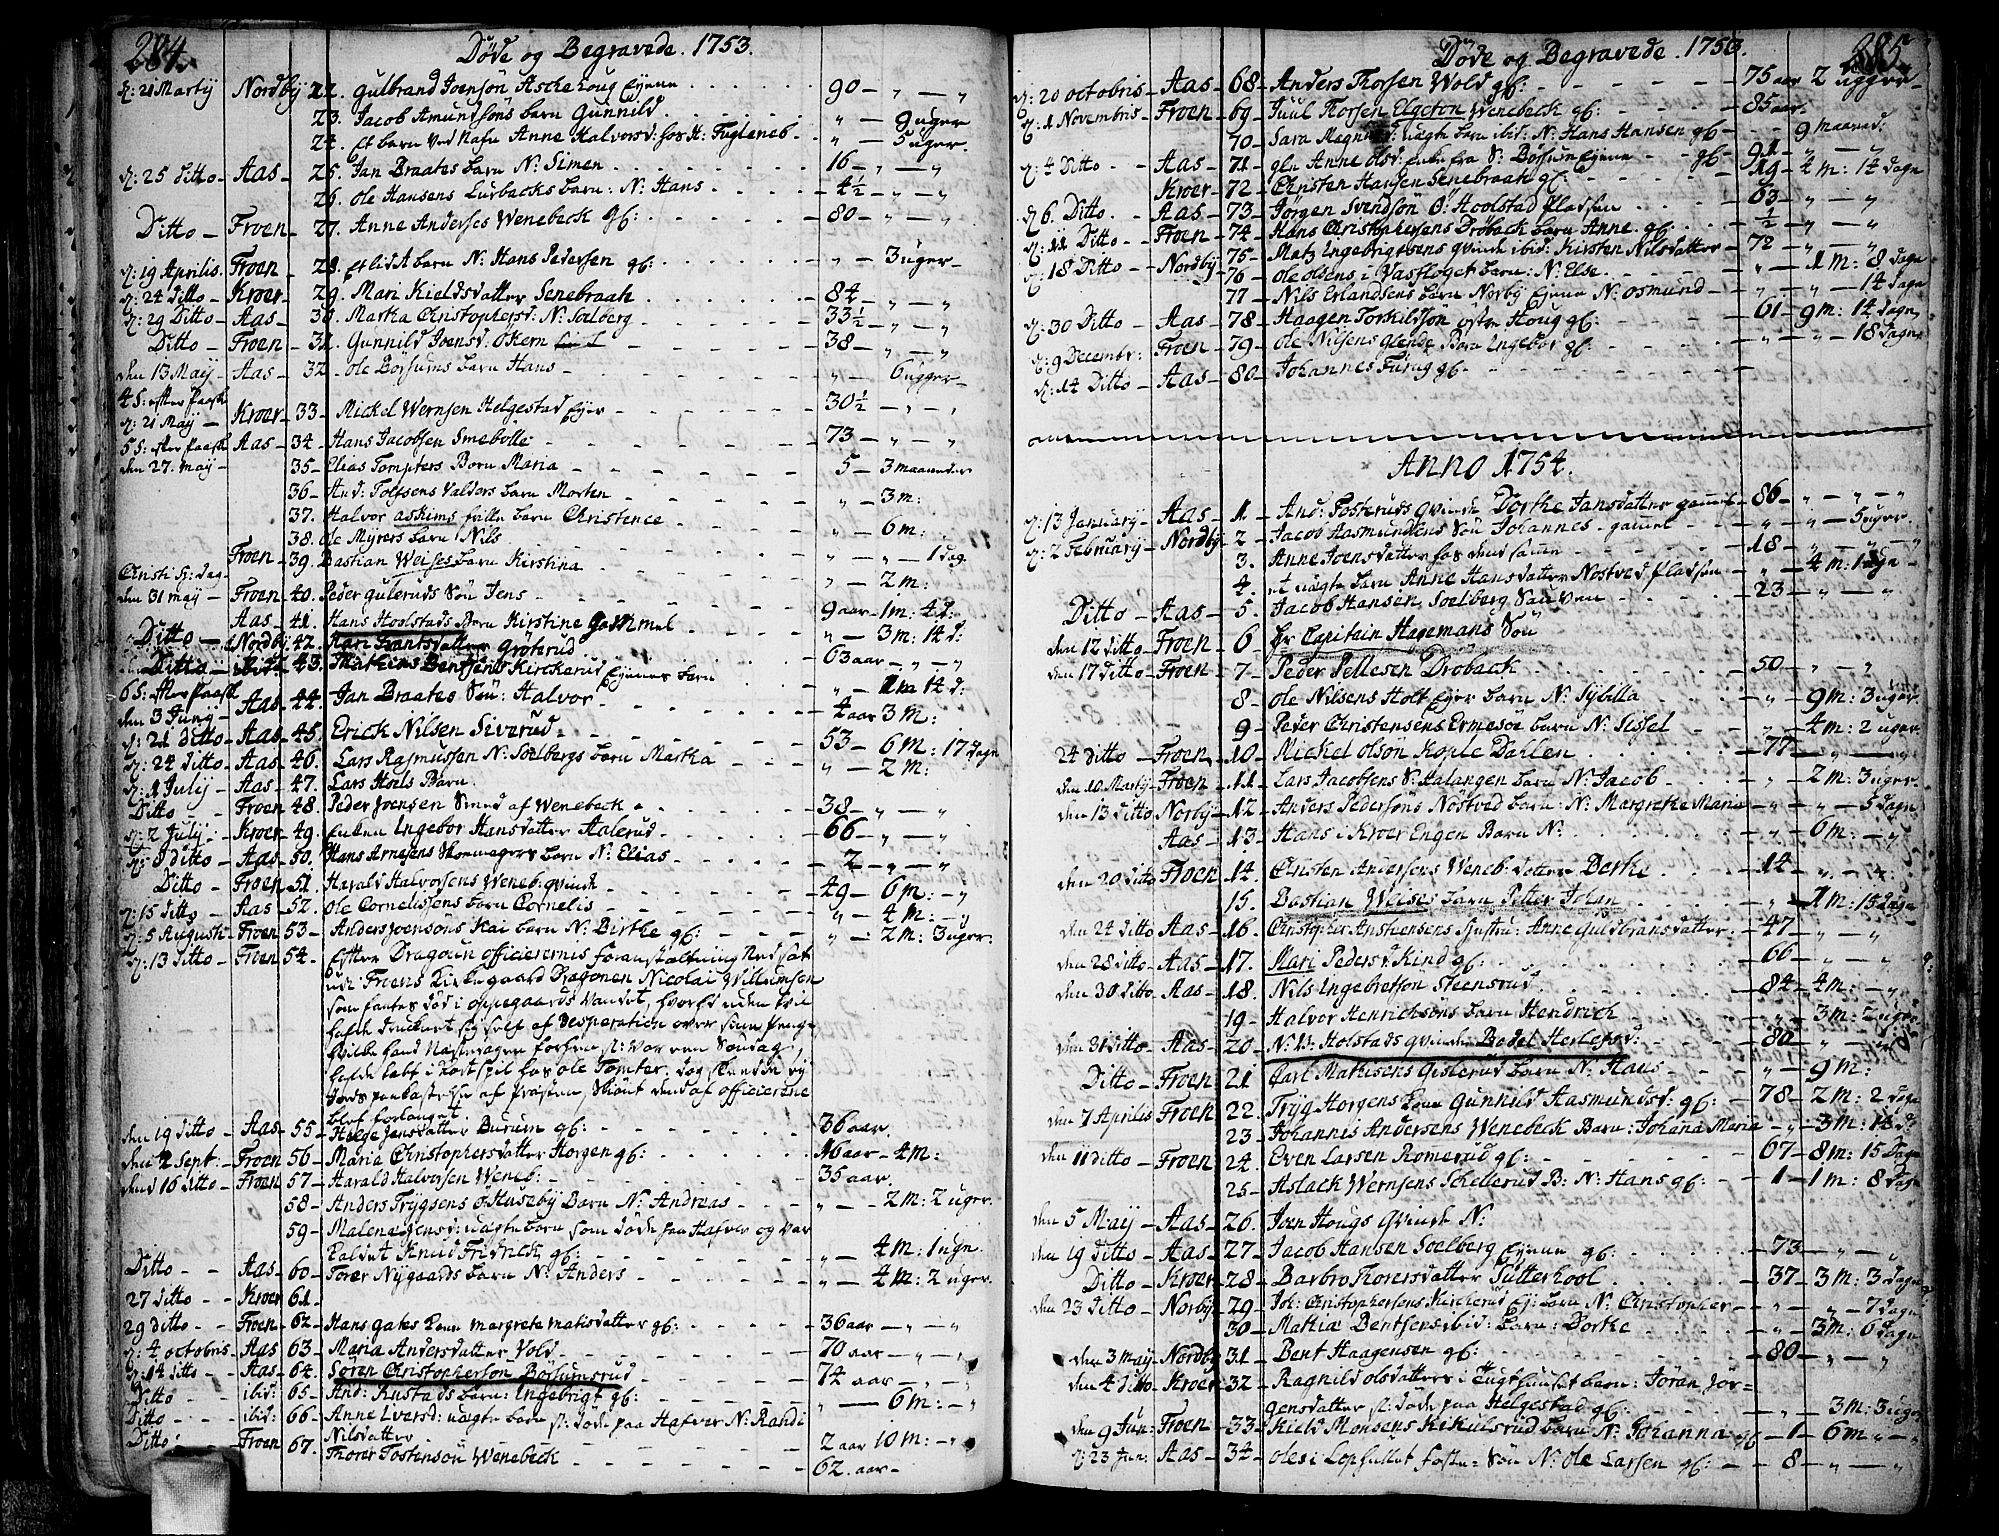 284.
Døde og Begravede. 1753.
d: 21 Martÿ Nordbÿ 22. Gulbrand Joensøn Aschehoug Eÿene 90 - " - "
23. Jacob Amundsøns barn Gunnild " - 9 uger
24. Et barn ved Nafn Anne Halvorsd: hos H: Fugleneb " - 5 uger
d: 25 Ditto - Aas - 25. Jan Braates barn N: Simen 16 - " - "
26. Ole Hansens Lurbacks barn: N: Hans 4½ - " - "
Ditto - Froen - 27. Anne Anderses Wenebeck gb: 80 - " - "
d: 19 Aprilis. Froen - 28. Et lidet barn N: Hans Pedersen gb: " - 3 uger
d: 24 Ditto - Kroer - 29. Mari Kieldsdatter Senebraak 84 - " - "
d: 29 Ditto - Aas - 30. Martha Christophersd: N: Soelberg 33½ - " - "
Ditto - Froen - 31. Gunnild Joensd: Okern 38 - " - "
den 13 Maÿ - Aas - 32. Ole Børsums barn Hans " - 6 ugger
4 S: efter Paask
d: 21 Maÿ - Kroer - 33 - Mickel Wernsen Helgestad Eÿer 30½ - " - "
5 S: efter Paask - Aas - 34. Hans Jacobsen Smebølle 73 - " - "
den 27. maÿ - 35 - Elias Tompters Barn Maria 5 - 3 maaneder
36 - And: Tolfsens Valders barn Morten " - 3 m:
37. Halvor Askims barn Christence " - 6 m:
38. Ole Mÿrers barn Nils
Froen - 39. Bastian Weises barn Kirstina " - " - 1 dag.
Christi H: dag
den 31 maÿ - Froen - 40. Peder Guleruds Søn Jens " - 2 m:
Aas - 41. Hans Hoolstads Barn Kirstine gammel 9 aar - 1 m: 4 d:
Ditto - Nordbÿ 42. Kari Frantsdatter Grøterud " - 3 m: 14 d:
Ditto - ibid: 43. Mathias Bentsens Kirckerud Eÿenes barn 63 aar - " - "
6 S: efter Paask
Aas - 44. Jan Braates Søn: Halvor " - 1 m 14 d:
den 3 Junÿ - Aas - 45. Erick Nilsen Siverud 4 aar 3 m:
d: 21 ditto - Aas - 46. Lars Rasmussen N: Soelbergs barn Martha 53 - 6 m: 17 dage
d: 24 ditto - Aas - 47. Lars Hoels Barn " - 2 m:
d: 1 Julÿ - Froen - 48. Peder Joensen Smed af Wenebeck 38 - " - "
Ditto
d: 2 Julÿ - Kroer - 49. Enken Ingebor Hansdatter Aalerud 66 - " - "
d: 8 ditto - Aas - 50. Hans Arnesens Skomagers barn N: Elias 2 - " - "
Ditto - Froen - 51. Harald Halvorsens Weneb: qvinde 49 - 6 m: - "
d: 15 ditto - Aas - 52. Ole Cornelissens barn Cornelis " - 4 m: - "
d: 5 Augusti - Froen 53 - Anders Joensøns Kai barn N: Birthe gb: " - 2 m: 3 uger:
d: 13 ditto - Froen 54. Efter Dragoun officierernis foranstaltning Nedsat
udi Froens Kirkegaard Dragonen Nicolai Villumsen
som fantes død i oppegaards Vandet, hvorved uden
druknet sig self af Desperation over sine Penge
Søndag,
hos Ole Tomter.
af Præsten, Skiønt dend af officierene
blef forlanget.
den 19 ditto - Aas - 55 - Helge Jansdatter Burum gb: 36 aar
den 2 Sept: - Froen 56 - Maria Christophersdatter Horgen gb: 16 aar - 4 m:
dend 16 ditto - Froen 57 - Harald Halvorsens Weneb: 35 aar
58 - Anders Trÿgsens Ø: Husebÿ Barn N: Andreas " - 2 m: 2 uger.
59 - Malene uægte barn som døde paa Hafvet og var
kaldet Knud Fridrich gb: " - 4 m: 1 uge.
Ditto - Aas - 60 - Torer Nÿgaards barn N: Anders " - 4 m: 2 uger.
27 ditto - Kroer 61 -
29 ditto - Froen - 62 - Hans Gates kone Margrete matisdatter gb: 36 aar - " - "
d: 4 octobris - Aas 63 - Maria Andersdatter Vold 70 aar - " - "
d: 14 ditto - Aas - 64. Søren Christophersøn Børsumsrud 74 aar - " - "
Ditto - ibid: - 65 - And: Rustads barn: Ingebrigt gb: " - 6 m: - "
Ditto - ibid: - 66 - Anne Iversd: uægte barn døde paa Hafvet N: Randi
Ditto - Froen - 67. Nilsdatter 2 aar 10 m: - "
Thorer Tostensøn Wenebeck 62. aar -
285.
Døde og Begravede. 1753.
d: 20 octobris - Aas - 68 - Anders Thorsen Wold gb: 75 aar 2 ugger
d: 1 Novembris - Froen - 69 - Juul Thorsen Elgeton Wenebeck gb: 85 aar
70 - Sara uægte barn ibid: N: Hans Hansen gb - 9 maaned:
d: 4 Ditto - Aas - 71 - gln Anne Olsd: Enke fra S: Børsum Eÿene gb - 91 - " - "
Kroer - 72 - Christen Hansen Senebraak gb: 19 - 4 m: 14 dage
d: 6. Ditto - Aas - 73 - Jørgen Svendsøn Ø: Hoolstad Pladsen 63 - " - "
d: 11 Ditto - Froen - 74 - Hans Christophersens Drøback barn Anne gb: ½ - " - "
75 - Matz Ingebrigtsens qvinde ibid: Kirsten Nilsdatter 72 - " - "
d: 18 Ditto - Nordbÿ - 76 - Ole Olsens i Vasfloget barn: N: Else " - 1 m: 8 dage
77 - Nils Erlandsens barn Norbÿ Eÿene N: Osmund " - 14 dage
d: 30 Ditto - Aas - 78 - Haagen Torkildsøn østre Houg gb: 61 - 9 m: 14 dage
d: 9 Decembr: - Froen - 79 - Ole Nilsens Glende Barn Ingebor gb: " - " 18 dage
d: 14 Ditto - Aas - 80 - Johannes Furug gb -
Anno 1754.
d: 13 Januarÿ - Aas - 1 - And: Fosteruds qvinde Dorthe Jansdatter gammel - 86 - " - " - "
d: 2 Februarÿ - Nordbÿ - 2 - Jacob Aasmundsens Søn Johannes - gammel " - " - 5 uger.
3. Anne Joensdatter hos dend samme 18 - " - "
4. et uægte barn Anne Hansdatter Nøstved Pladsen " - 4 m: 1 dage
Ditto - Aas - 5 - Jacob Hansen Soelberg Søn 23 - " - "
den 12 ditto - Froen - 6 - Hr Capitain Hagemans Søn
den 17 ditto - Froen - 7 - Peder Pellesen Drøback 50 - " - "
8 - Ole Nilsens Holt Eÿer barn N: Sÿbilla " - 9 m: 3 uger
9 - Peder Christensens Ermesøe barn N: Sissel " - 4 m: 2 uger
24 ditto - Froen - 10 - Mickel Olson Kople Dahlen 77 - " - "
den 10 Martÿ - Froen - 11 - Lars Jacobsens N: Halangen barn N: Jacob " 2 m: 3 uger.
den 13 ditto Norbÿ - 12 - Anders Pedersøns Nøstvid barn: N: Margrethe Maria - " - " - 5 dage
Aas - 13 - Hans i Kroer Engen Barn N: " - 6 m: - "
den 20 ditto Froen - 14 - Christen Andersens Weneb: datter Berthe 14 - " - "
15. Bastian Weises barn Petter Johan " - 1 m: 15 dage
den 24 ditto - Aas - 16 - Christopher Ansteensens Hustru: Anne Guldbransdatter 47 - " - "
den 28 ditto - Aas - 17. Mari Pedersd: Kind gb: 66 - " - "
den 30 ditto - Aas - 18. Nils Ingebretsøn Steensrud 84 - 4 m: - "
19 - Halvor Henrichsøns barn Hendrich " - 3 m: 2 uger
den 31 ditto - Aas - 20 - N: W: Holstads qvinde Bodel Herlofsd: 80 - " - "
Ditto - Froen - 21 - Carl Mathisens Gislerud barn N: Hans " - 9 m:
den 7 Aprilis - Froen - 22 - Trÿg Horgens kone Gunnild Aasmundsd: gb: 78 - 2 m: 2 dage
23 - Johannes Andersens Wenebeck Barn: Johana Maria - " - 3 m: 18 d:
den 11 ditto - Froen - 24 - Even Larsen Romerud gb: 67 - 8 m: 15 dage
25 - Aslack Wernsens Schellerud B: N: Hans gb: 1 - 1 m: 8 dage
den 5 Maÿ - Aas - 26 - Joen Hougs Qvinde N:
den 19 ditto - Aas - 27 - Jacob Hansen Soelberg Eÿene gb: 73 - " - "
Ditto - Kroer - 28 - Barbro Thorersdatter Sutterhool 37 - 3 m: 3 dage
den 23 ditto - Norbÿ - 29 - Joh: Christophersens Kirkerud Eÿ: barn N: Christopher " - " - 7 dage
30 - Mathia Bentsens ibid: barn: Dorthe " 3 m: 6 dage
den 3 maÿ - Nordbÿ - 31 - Bent Haagensen gb: 80 - " - "
den 4 ditto - Kroer - 32 - Ragnild Olsdatters i Tugthuuset barn: Jøran Jør-
gensdatter døde paa Helgestad gb: " - 3 m: 3 uger
den 9 Jun: - Froen - 33 - Kield Monsens Kikulsrud barn N: Johanna gb - 1 - 6 m - "
d: 23 Jun: - Aas - 34 - Ole i Lophullet foste: Søn N: Ole Larsen gb: 8 - " - "